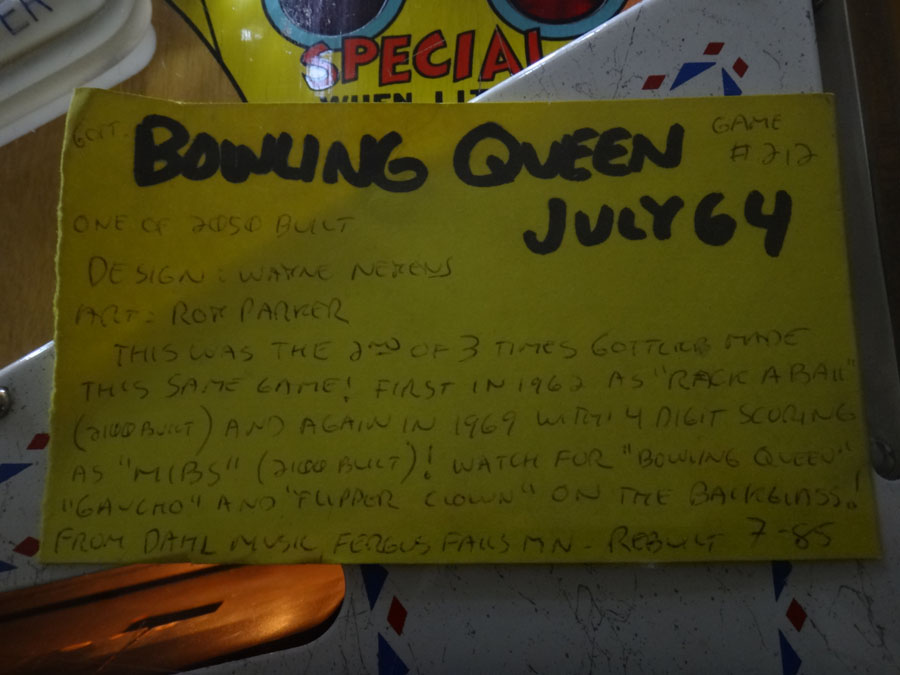 ER
SPECIAL
WHEN LIT
GOTT. BOWLING QUEEN GAME
#212
JULY 64
ONE OF 2050 BUILT
DESIGN: WAYNE NEYENS
ART: ROY PARKER
THIS WAS THE 2ND OF 3 TIMES GOTTLIEB MADE
THIS SAME GAME! FIRST IN 1962 AS "RACK A BALL"
(2100 BUILT) AND AGAIN IN 1969 WITH 4 DIGIT SCORING
AS "MIBS" (2100 BUILT)! WATCH FOR "BOWLING QUEEN"
"GAUCHO" AND "FLIPPER CLOWN" ON THE BACKGLASS!
FROM DAHL MUSIC, FERGUS FALLS MN - REBUILT 7-85